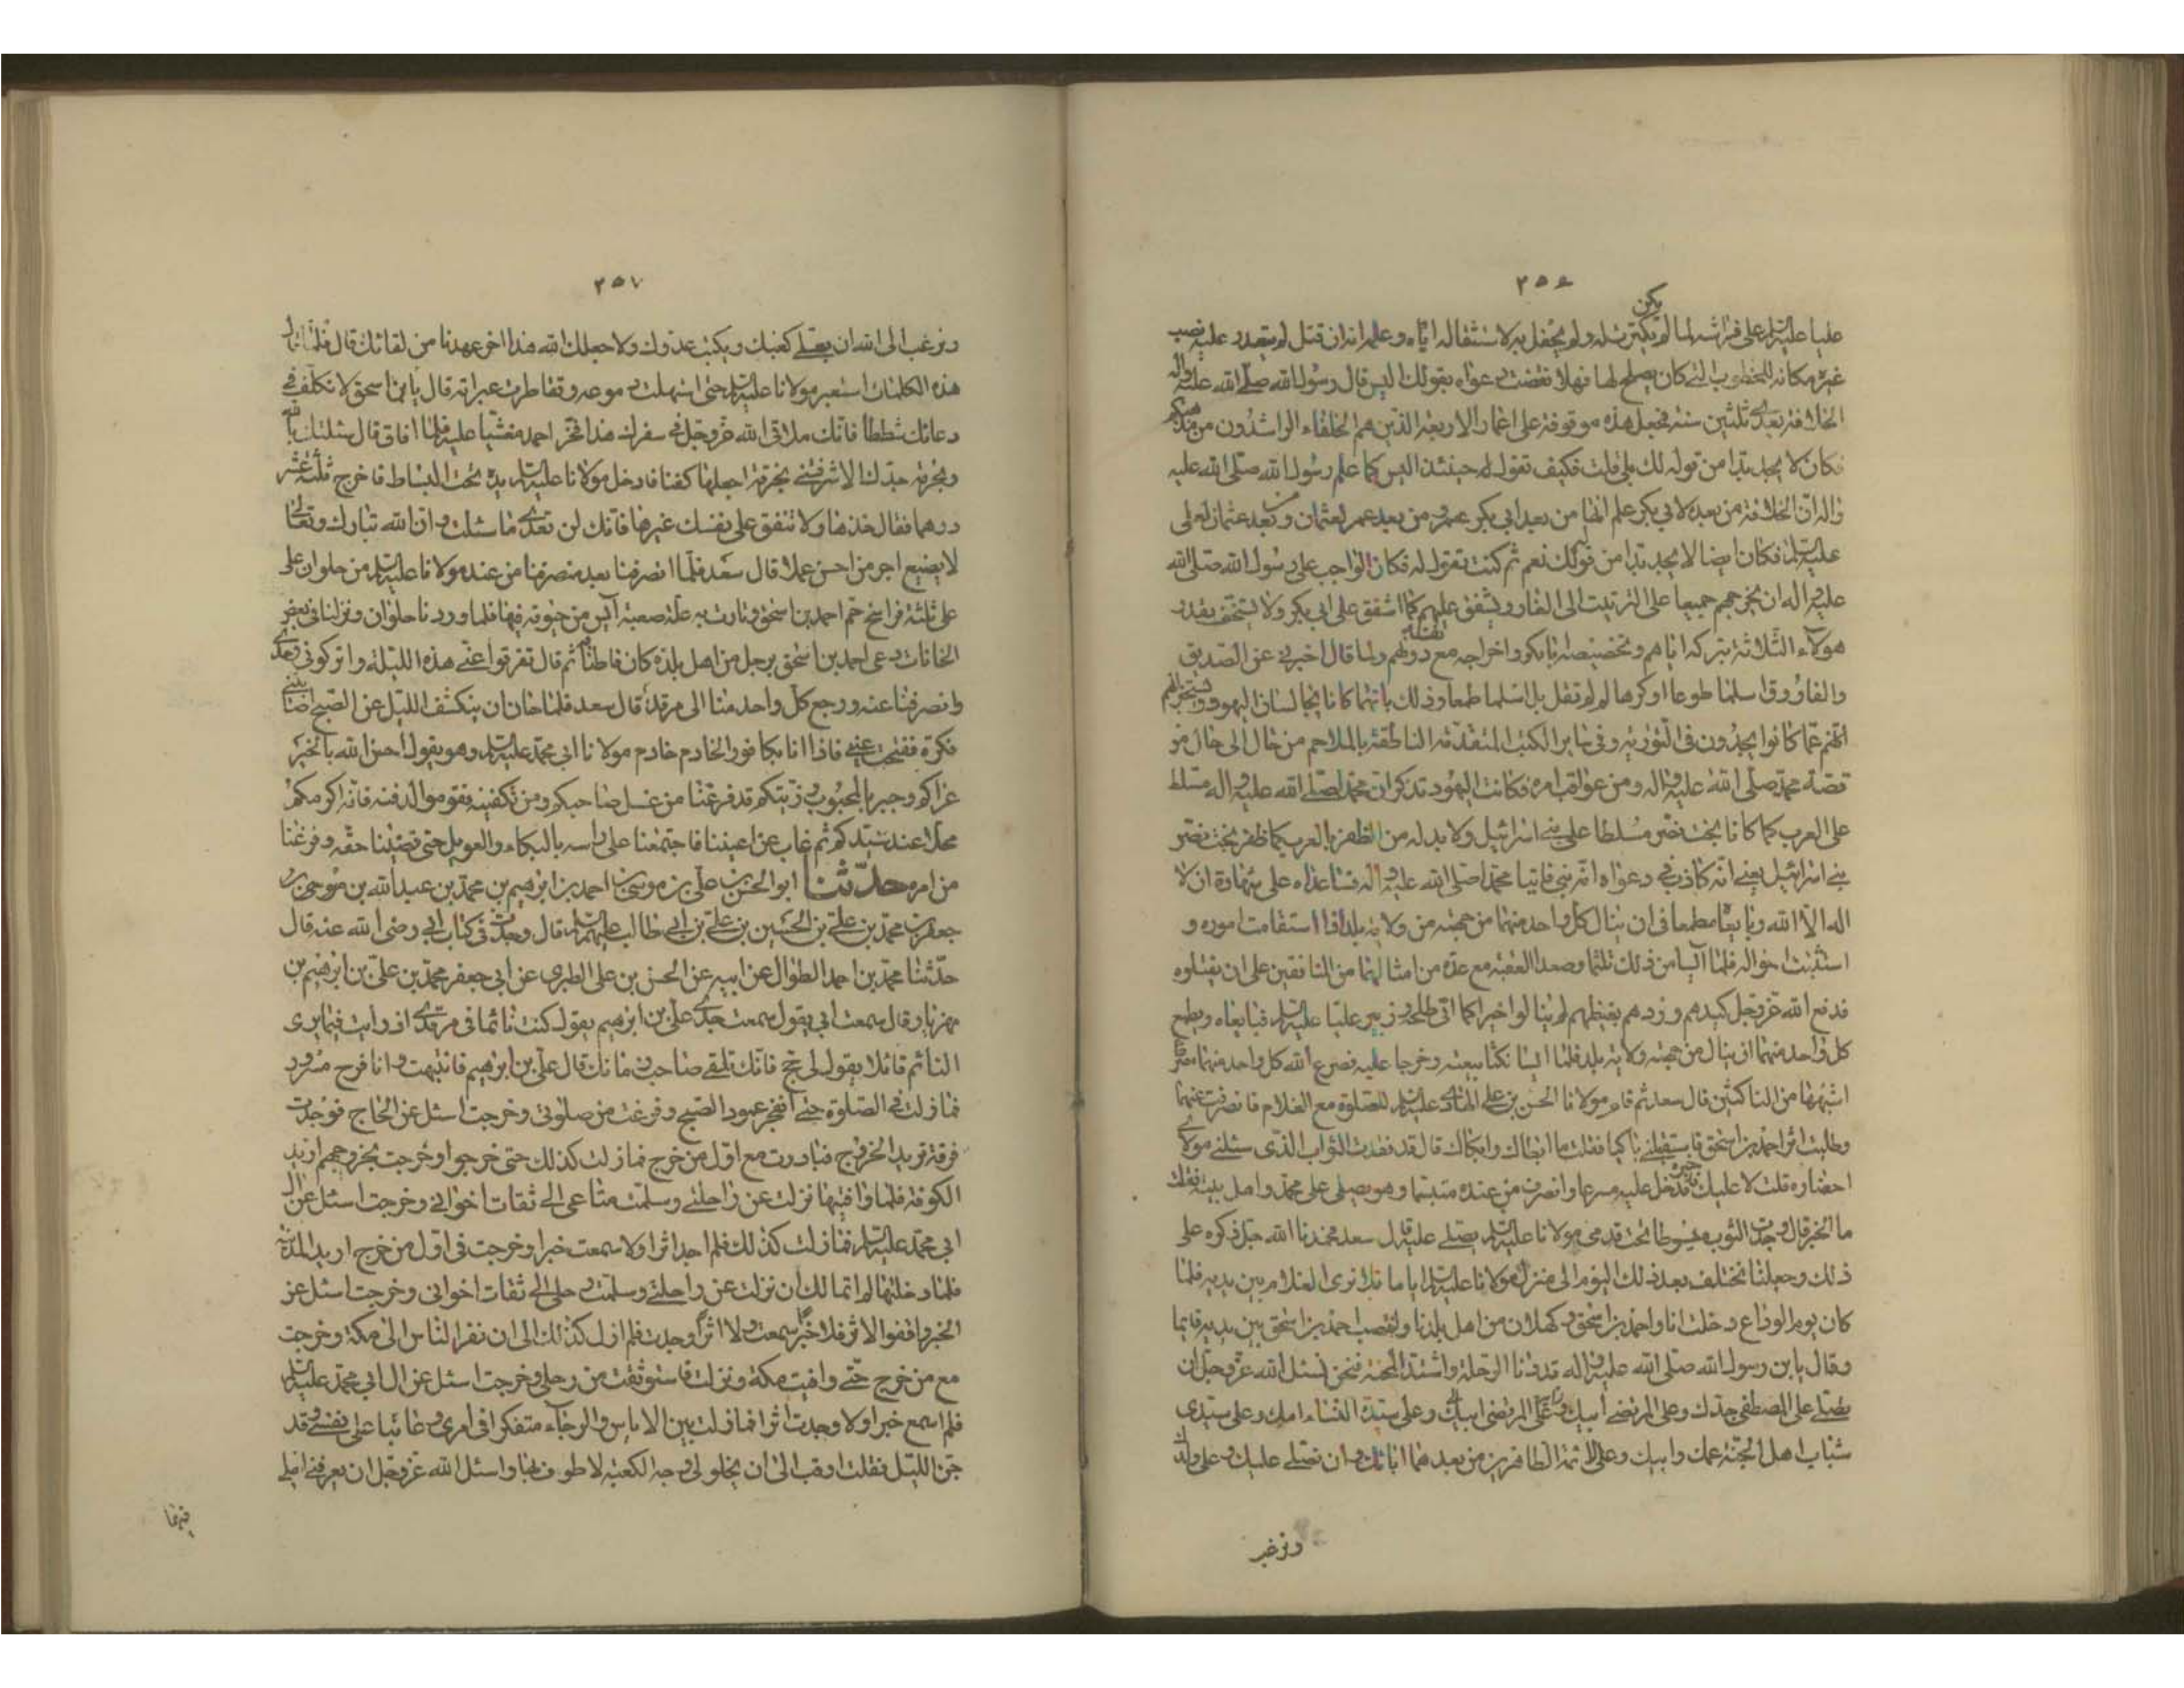 ٢٥٦
يكن
عليا عليه السلام على فراشه لما لم يكترث له ولم يحفل به لاستثقاله اياه وعلمه انه ان قتل لم يتعذر عليه نصب
غيره مكانه للخطوب التي كان يصلح لها فهلا نقضت دعواه بقولك اليس قال رسول الله صلى الله عليه واله
الخلافة بعدي ثلثين سنة فجعل هذه موقوفة على اعمار الاربعة الذين هم الخلفاء الراشدون من مذهبكم
فكان لا يجد بدا من قوله لك بلى قلت فكيف تقول له حينئذ اليس كما علم رسول الله صلى الله عليه
واله ان الخلافة من بعده لابي بكر علم انها من بعد ابي بكر عمر ومن بعد عمر لعثمان ومن بعد عثمان لعلي
عليه السلام فكان ايضا لا يجد بدا من قوله لك نعم ثم كنت تقول له فكان الواجب على رسول الله صلى الله
عليه واله ان يخرجهم جميعا على الترتيب الى الغار ويشفق عليهم كما اشفق على ابي بكر ولا يستخف بقدر
هؤلاء الثلاثة بتركه اياهم وتخصيصه ابا بكر واخراجه مع نفسه دونهم ولما قال اخبرني عن الصديق
والفاروق اسلما طوعا او كرها لم لم تقل بل اسلما طمعا وذلك بانهما كانا يجالسان اليهود ويستخبرانهم
انهم عما كانوا يجدون في التورية وفي ساير الكتب المتقدمة الناطقة بالملاحم من حال الى حال من
قصة محمد صلى الله عليه واله ومن عواقب امره فكانت اليهود تذكر ان محمدا صلى الله عليه واله مسلط
على العرب كما كانا بخت نصر مسلطا على بني اسرائيل ولا بد له من الظفر بالعرب كما ظفر بخت نصر
بني اسرائيل يعني انه كاذب في دعواه انه نبي فاتيا محمدا صلى الله عليه واله فساعداه على شهادة ان لا
اله الا الله وبايعا مطمعا في ان ينال كل واحد منهما من جهته من ولاية بلد اذا استقامت اموره و
استتبت احواله فلما ايسا من ذلك تلثما وصعدا العقبة مع عدة من امثالهما من المنافقين على ان يقتلوه
فدفع الله عز وجل كيدهم وردهم بغيظهم لم ينالوا خيرا كما اتى طلحة وزبير عليا عليه السلام فبايعاه وطمع
كل واحد منهما ان ينال من جهته ولاية بلد فلما ايسا نكثا بيعته وخرجا عليه فصرع الله كل واحد منهما مصرع
اشبهها من الناكثين قال سعد ثم قام مولانا الحسن بن علي الهادي عليه السلام للصلوة مع الغلام فانصرفت عنهما
وطلبت اثر احمد بن اسحق فاستقبلني باكيا فقلت ما ابطاك وابكاك قال قد فقدت الثواب الذي سئلني مولاي
احضاره قلت لا عليك فاخبره فدخل عليه مسرعا وانصرف من عنده متبسما وهو يصلي على محمد واهل بيته فقلت
ما الخبر قال وجدت الثوب مبسوطا تحت قدمي مولانا عليه السلام يصلي عليه قال سعد فحمدنا الله جل ذكره على
ذلك وجعلنا نختلف بعد ذلك اليوم الى منزل مولانا عليه السلام اياما فلا نرى الغلام بين يديه فلما
كان يوم الوداع دخلت انا واحمد بن اسحق وكهلان من اهل بلدنا وانتصب احمد بن اسحق بين يديه قايما
وقال يابن رسول الله صلى الله عليه واله قد دنا الرحلة واشتد المحنة فنحن نسئل الله عز وجل ان
يصلي على المصطفى جدك وعلى المرتضى ابيك وعلى سيدة النساء امك وعلى سيدي
شباب اهل الجنة عمك وابيك وعلى الائمة الطاهرين من بعدهما ابائك وان تصلي عليك وعلى ولدك
ونرغب
٢٥٧
ونرغب الى الله ان يعلي كعبك ويكبت عدوك ولا جعل الله هذا اخر عهدنا من لقائك قال فلما قال
هذه الكلمات استعبر مولانا عليه السلام حتى استهلت دموعه وتقاطرت عبراته قال يابن اسحق لا تكلف في
دعائك شططا فانك ملاقي الله عز وجل في سفرك هذا فخر احمد مغشيا عليه فلما افاق قال سئلتك بالله
وبحرمة جدك الا شرفتني بخرقة اجعلها كفنا فادخل مولانا عليه السلام يده تحت البساط فاخرج ثلثة عشر
درهما فقال خذها ولا تنفق على نفسك غيرها فانك لن تعدم ما سئلت وان الله تبارك وتعالى
لا يضيع اجر من احسن عملا قال سعد فلما انصرفنا بعد منصرفنا من عند مولانا عليه السلام من حلوان على
على ثلثة فراسخ حم احمد بن اسحق وثارت به علة صعبة آيس من حيوته فيها فلما وردنا حلوان ونزلنا في بعض
الخانات دعى احمد بن اسحق برجل من اهل بلده كان قاطنا بها ثم قال تفرقوا عني هذه الليلة واتركوني وحدي
وانصرفنا عنه ورجع كل واحد منا الى مرقده قال سعد فلما حان ان ينكشف الليل عن الصبح اصابتني
فكرة ففتحت عيني فاذا انا بكافور الخادم خادم مولانا ابي محمد عليه السلام وهو يقول احسن الله بالخير
عزاكم وجبر بالمحبوب رزيتكم قد فرغنا من غسل صاحبكم ومن تكفينه فقوموا لدفنه فانه اكرمكم
محلا عند سيدكم ثم غاب عن اعيننا فاجتمعنا على راسه بالبكاء والعويل حتى قضينا حقه وفرغنا
من امره حدثنا ابو الحسن علي بن موسى بن احمد بن ابرهيم بن محمد بن عبد الله بن موسى بن
جعفر بن محمد بن علي بن الحسين بن علي بن ابي طالب عليهم السلام قال وجدت في كتاب ابي رضي الله عنه قال
حدثنا محمد بن احمد الطوال عن ابيه عن الحسن بن علي الطبري عن ابي جعفر محمد بن علي بن ابرهيم بن
مهزيار قال سمعت ابي يقول سمعت جدي علي بن ابرهيم يقول كنت نائما في مرقدي اذ رايت فيما يرى
النائم قائلا يقول لي حج فانك تلقى صاحب زمانك قال علي بن ابرهيم فانتبهت وانا فرح مسرور
فما زلت في الصلوة حتى انفجر عمود الصبح وفرغت من صلوتي وخرجت اسئل عن الحاج فوجدت
فرقة تريد الخروج فبادرت مع اول من خرج فما زلت كذلك حتى خرجوا وخرجت بخروجهم اريد
الكوفة فلما وافيتها نزلت عن راحلتي وسلمت متاعي الى ثقات اخواني وخرجت اسئل عن ال
ابي محمد عليه السلام فما زلت كذلك فلم اجد اثرا ولا سمعت خبرا وخرجت في اول من خرج اريد المدينة
فلما دخلتها لم اتمالك ان نزلت عن راحلتي وسلمت رحلي الى ثقات اخواني وخرجت اسئل عن
الخبر واقفوا الاثر فلا خبرا سمعت ولا اثرا وجدت فلم ازل كذلك الى ان نفر الناس الى مكة وخرجت
مع من خرج حتى وافيت مكة ونزلت فاستوثقت من رحلي وخرجت اسئل عن ال ابي محمد عليه السلام
فلم اسمع خبرا ولا وجدت اثرا فما زلت بين الاياس والرجاء متفكرا في امري وعائبا على نفسي وقد
جن الليل فقلت ارقب الى ان يخلو لي وجه الكعبة لاطوف بها واسئل الله عز وجل ان يعرفني املي
فيها